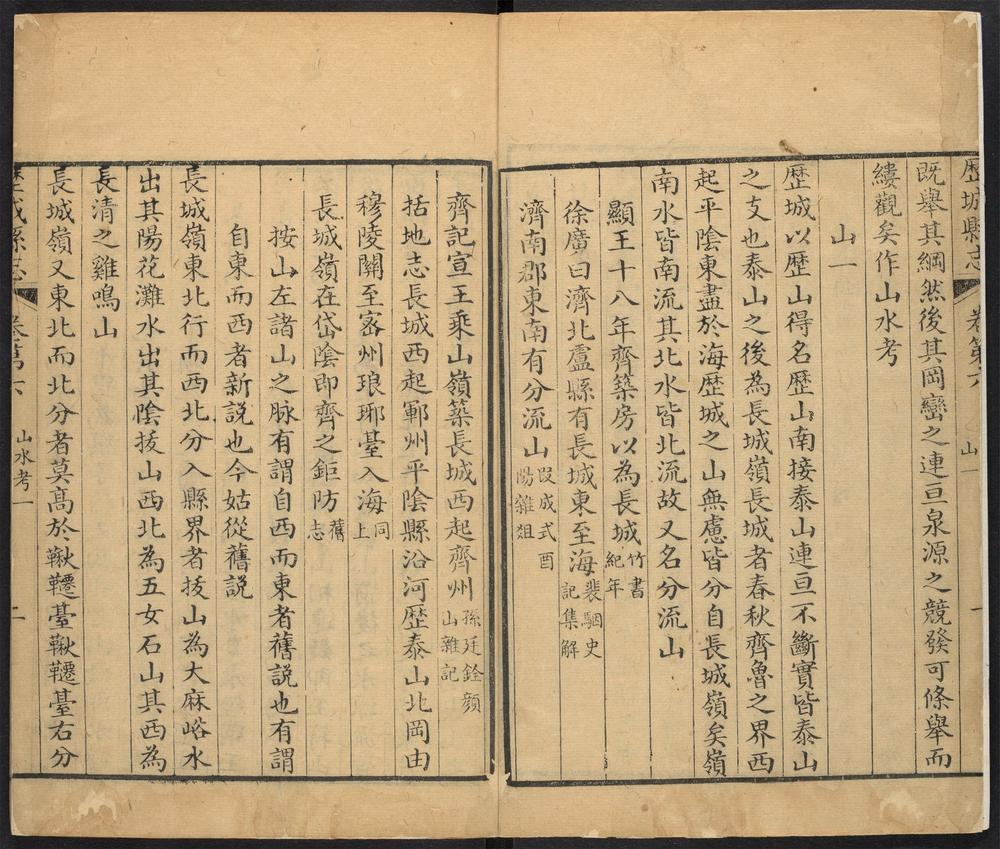 歷城縣志 卷第六 山一 一
既舉其綱然後其岡巒之連亘泉源之競發可條舉而
縷觀矣作山水考
山一
歷城以歷山得名歷山南接泰山連亘不斷實皆泰山
之支也泰山之後為長城嶺長城者春秋齊魯之界西
起平陰東盡於海歷城之山無慮皆分自長城嶺矣嶺
南水皆南流其北水皆北流故又名分流山
顯王十八年齊築房以為長城竹書紀年
徐廣曰濟北盧縣有長城東至海裴駰史記集解
濟南郡東南有分流山段成式酉陽雜俎
齊記宣王乘山嶺築長城西起齊州孫廷銓顏山雜記
括地志長城西起鄆州平陰縣沿河歷泰山北岡由
穆陵關至密州琅琊臺入海同上
長城嶺在岱陰即齊之鉅防舊志
按山左諸山之脉有謂自西而東者舊説也有謂
自東而西者新説也今姑從舊説
長城嶺東北行而西北分入縣界者拔山為大麻峪水
出其陽花灘水出其陰拔山西北為五女石山其西為
長清之雞鳴山
長城嶺又東北而北分者莫高於鞦韆臺鞦韆臺右分
歷城縣志 卷第六 山水考一 二